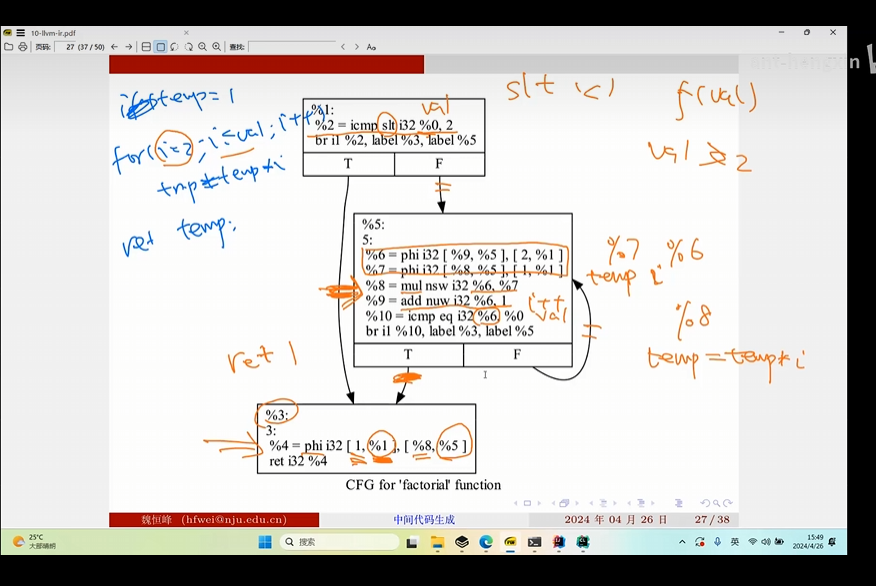 10-llvm-ir.pdf
页码: 27 (37 / 50) 查找: Aa
temp = 1
for(i=2; i≤val; i++)
tmp=temp*i
ret temp;
slt <
f(val)
val ≥ 2
val
%1:
%2 = icmp slt i32 %0, 2
br i1 %2, label %3, label %5
T F
%5:
5:
%6 = phi i32 [ %9, %5 ], [ 2, %1 ]
%7 = phi i32 [ %8, %5 ], [ 1, %1 ]
%8 = mul nsw i32 %6, %7
%9 = add nuw i32 %6, 1
%10 = icmp eq i32 %6, %0
br i1 %10, label %3, label %5
T F
i++
val
%7 %6
temp i
%8
temp = temp * i
ret 1
%3:
3:
%4 = phi i32 [ 1, %1 ], [ %8, %5 ]
ret i32 %4
CFG for 'factorial' function
魏恒峰 (hfwei@nju.edu.cn) 中间代码生成 2024 年 04 月 26 日 27 / 38
25°C
大部晴朗
搜索
英
15:49
2024/4/26